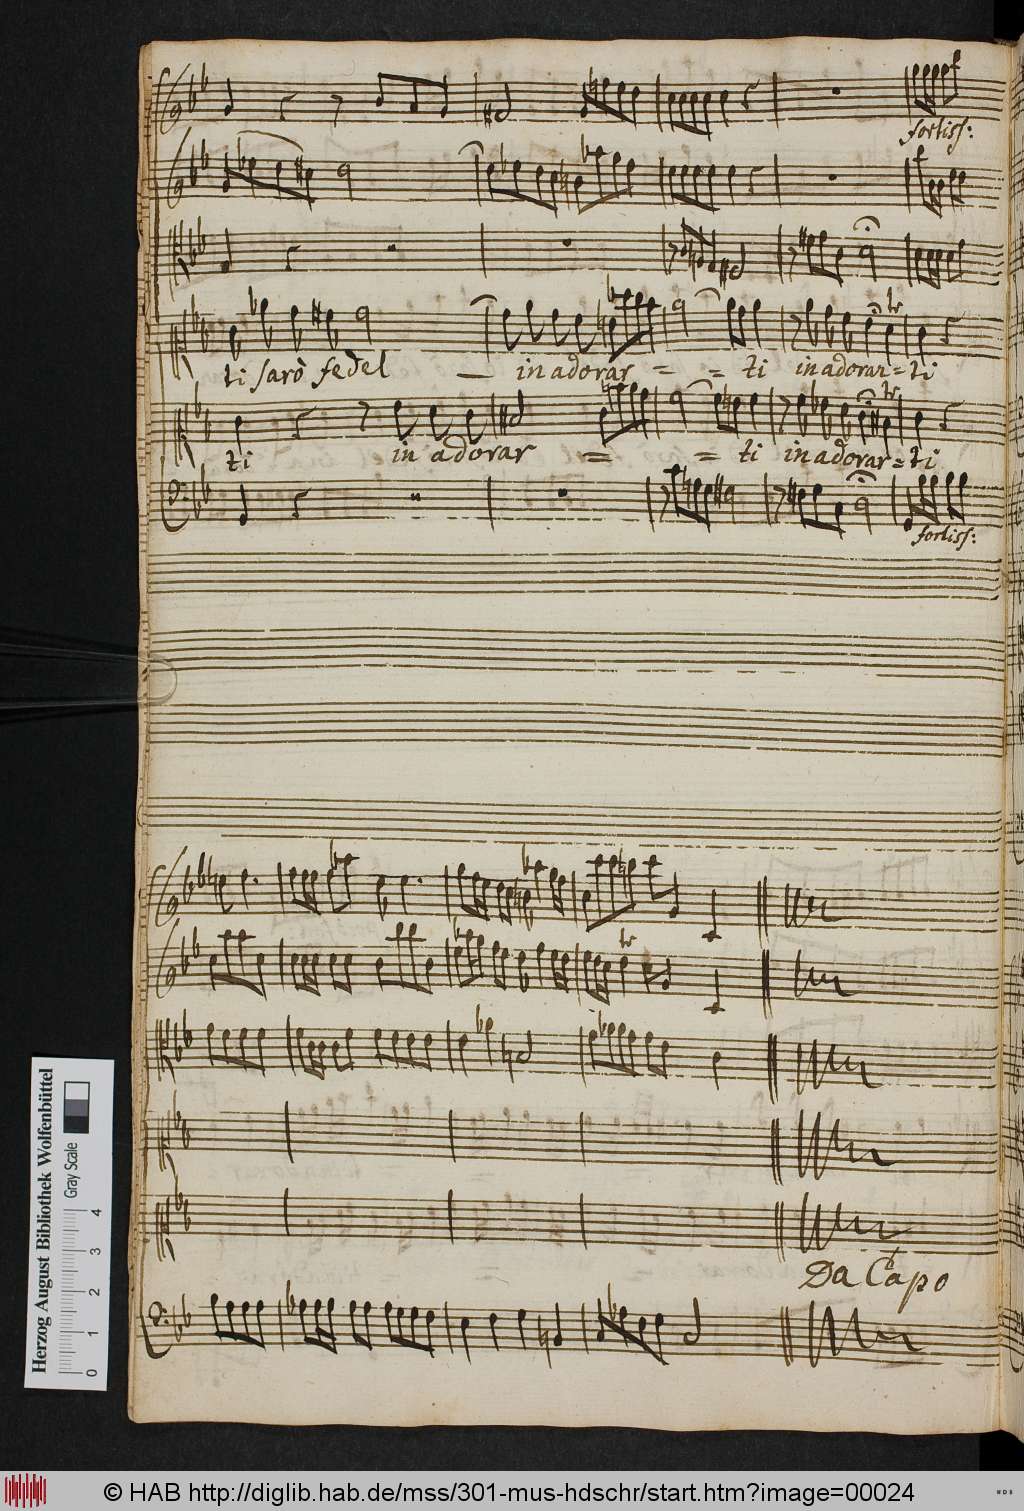 fortiss:
ti sarò fedel — in adorar = = ti in adorar = ti
ti in adorar = = ti in adorar = ti
fortiss:
Da Capo
Herzog August Bibliothek Wolfenbüttel
Gray Scale
0 1 2 3 4
© HAB http://diglib.hab.de/mss/301-mus-hdschr/start.htm?image=00024